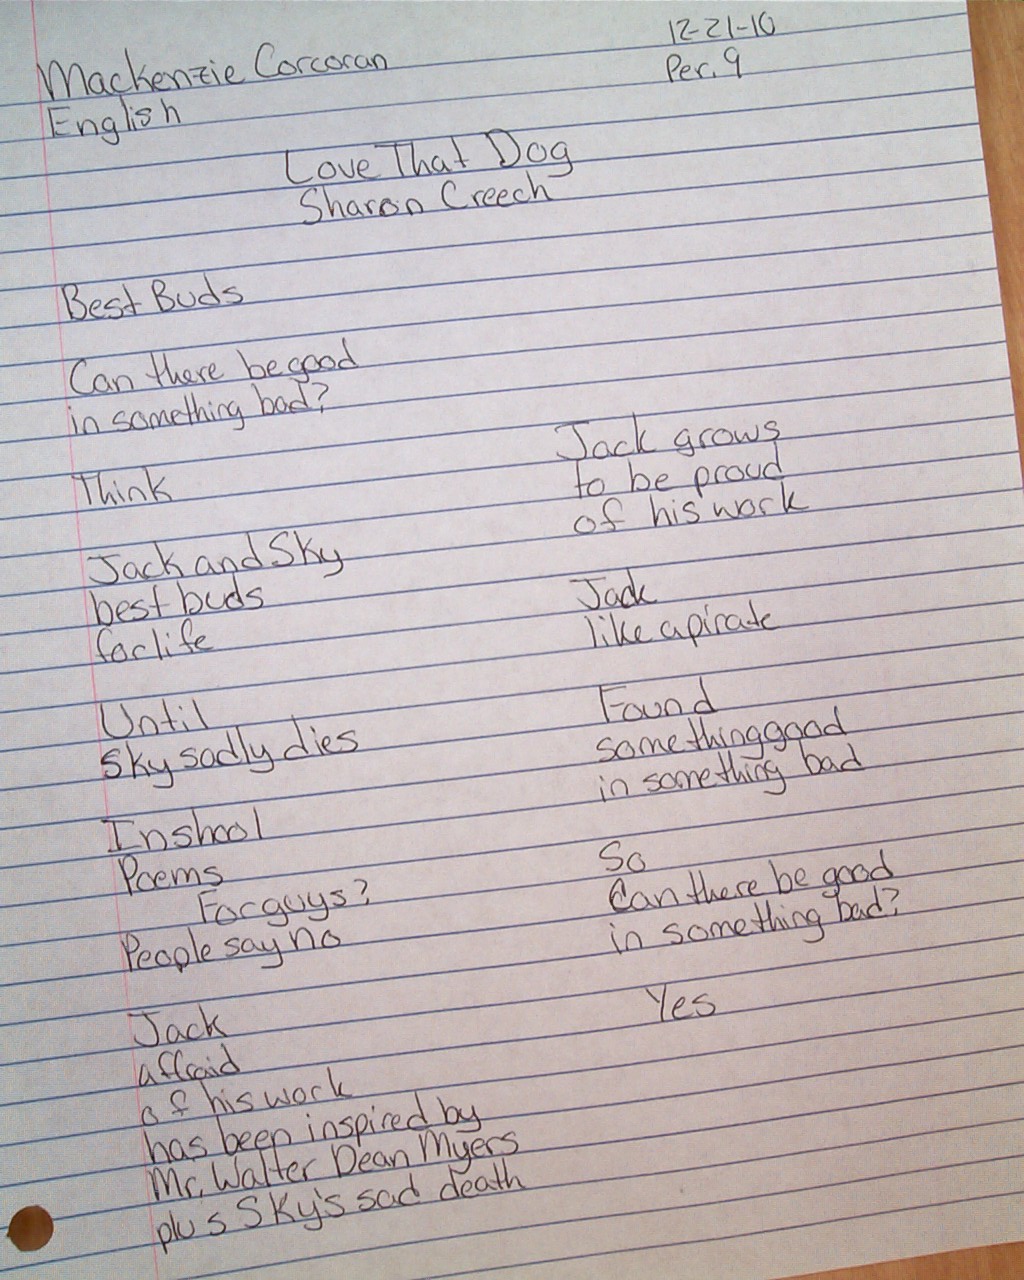 Mackenzie Corcoran
12-21-10
English
Per. 9
Love That Dog
Sharon Creech
Best Buds
Can there be good
in something bad?
Think
Jack and Sky
best buds
for life
Until
Sky sadly dies
In shool
Poems
For guys?
People say no
Jack
affraid
of his work
has been inspired by
Mr. Walter Dean Myers
plus Sky's sad death
Jack grows
to be proud
of his work
Jack
like a pirate
Found
something good
in something bad
So
Can there be good
in something bad?
Yes